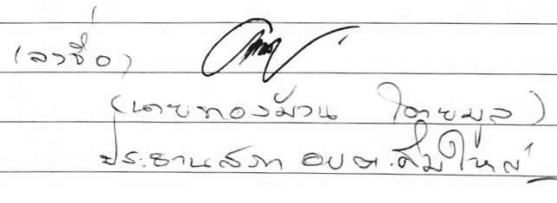 (ลงชื่อ)
(นายทองม้วน โดยมูล)
ประธานสภา อบต.คึมใหญ่